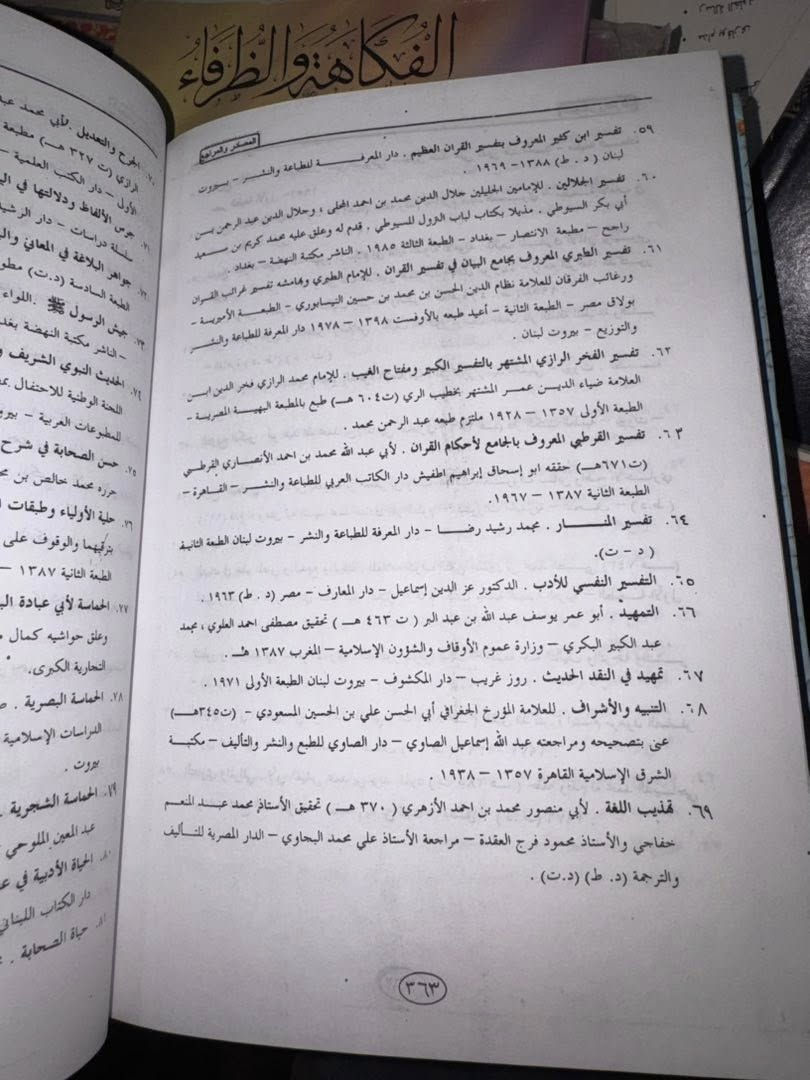 الفكاهة والظرفاء
المصادر والمراجع
٥٩. تفسير ابن كثير المعروف بتفسير القران العظيم . دار المعرفة للطباعة والنشر – بيروت
لبنان ( د . ط) ١٣٨٨ – ١٩٦٩ .
٦٠. تفسير الجلالين . للإمامين الجليلين جلال الدين محمد بن احمد المحلى ، وجلال الدين عبد الرحمن بسن
أبي بكر السيوطي . مذيلا بكتاب لباب النزول للسيوطي ، قدم له وعلق عليه محمد كريم بن سعيد
راجح – مطبعة الانتصار – بغداد – الطبعة الثالثة ١٩٨٥ . الناشر مكتبة النهضة – بغداد .
٦١. تفسير الطبري المعروف بجامع البيان في تفسير القران . للإمام الطبري وبهامشه تفسير غرائب القران
ورغائب الفرقان للعلامة نظام الدين الحسن بن محمد بن حسين النيسابوري – الطبعة الأميرية –
بولاق مصر – الطبعة الثانية – أعيد طبعه بالأوفست ١٣٩٨ – ١٩٧٨ دار المعرفة للطباعة والنشر
والتوزيع – بيروت لبنان .
٦٢. تفسير الفخر الرازي المشتهر بالتفسير الكبير ومفتاح الغيب . للإمام محمد الرازي فخر الدين ابن
العلامة ضياء الدين عمر المشتهر بخطيب الري (ت ٦٠٤ هـ) طبع بالمطبعة البهية المصرية –
الطبعة الأولى ١٣٥٧ – ١٩٣٨ ملتزم طبعه عبد الرحمن محمد .
٦٣. تفسير القرطبي المعروف بالجامع لأحكام القران . لأبي عبد الله محمد بن احمد الأنصاري القرطبي
(ت ٦٧١هـ) حققه ابو إسحاق إبراهيم اطفيش دار الكاتب العربي للطباعة والنشر – القاهرة –
الطبعة الثانية ١٣٨٧ – ١٩٦٧.
٦٤. تفسير المنار . محمد رشيد رضا – دار المعرفة للطباعة والنشر – بيروت لبنان الطبعة الثانية
( د – ت).
٦٥. التفسير النفسي للأدب . الدكتور عز الدين إسماعيل – دار المعارف – مصر (د . ط) ١٩٦٣ .
٦٦. التمهيد . أبو عمر يوسف عبد الله بن عبد البر ( ت ٤٦٣ هـ ) تحقيق مصطفى احمد العلوي ، محمد
عبد الكبير البكري – وزارة عموم الأوقاف والشؤون الإسلامية – المغرب ١٣٨٧ هـ .
٦٧. تمهيد في النقد الحديث . روز غريب – دار المكشوف – بيروت لبنان الطبعة الأولى ١٩٧١ .
٦٨. التنبيه والأشراف . للعلامة المؤرخ الجغرافي أبي الحسن علي بن الحسين المسعودي - (ت٣٤٥هـ)
عنى بتصحيحه ومراجعته عبد الله إسماعيل الصاوي – دار الصاوي للطبع والنشر والتأليف – مكتبة
الشرق الإسلامية القاهرة ١٣٥٧ – ١٩٣٨ .
٦٩. تهذيب اللغة . لأبي منصور محمد بن احمد الأزهري ( ٣٧٠ هـ ) تحقيق الأستاذ محمد عبد المنعم
خفاجي والأستاذ محمود فرج العقدة – مراجعة الأستاذ علي محمد البجاوي – الدار المصرية للتأليف
والترجمة (د. ط) (د.ت) .
٣٦٣
٧٠. الجرح والتعديل . لأبي محمد
الرازي (ت ٣٢٧ هـ) مطبعة
الأولى – دار الكتب العلمية –
٧١. جرس الألفاظ ودلالتها في
سلسلة دراسات – دار
٧٢. جواهر البلاغة في المعاني
الطبعة السادسة (د.ت)
٧٣. جيش الرسول ﷺ . اللواء
– الناشر مكتبة النهضة
٧٤. الحديث النبوي الشريف
اللجنة الوطنية للاحتفال
للمطبوعات العربية –
٧٥. حسن الصحابة في شرح
حرره محمد خالص بن
٧٦. حلية الأولياء وطبقات
والوقوف على
الطبعة الثانية ١٣٨٧ –
٢٧. الحماسة لأبي عبادة
وعلق حواشيه كمال
التجارية الكبرى.
٢٨. الحماسة البصرية .
الدراسات الإسلامية
بيروت .
٧٩. الحماسة الشجرية .
عبد المعين الملوحي
٨٠. الحياة الأدبية في
دار الكتاب اللبناني
٨١. حياة الصحابة .